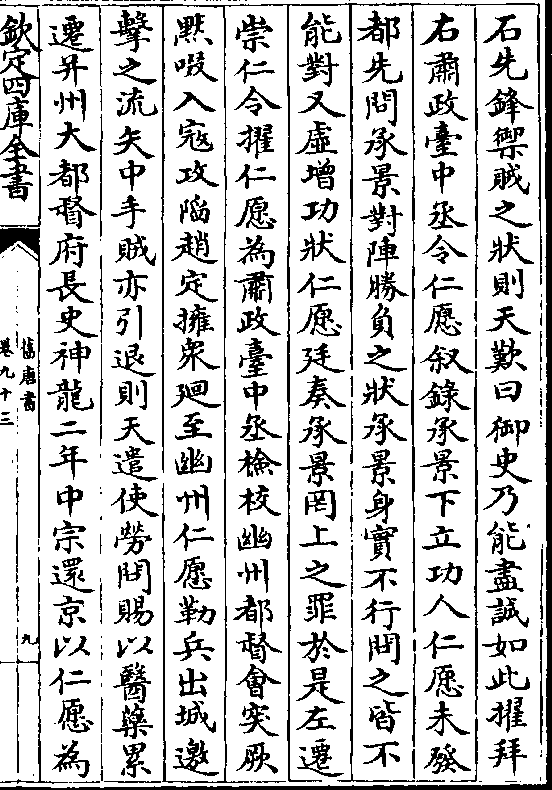 石先鋒禦賊之狀則天歎曰御史乃能盡誠如此擢拜
右肅政臺中丞令仁愿叙錄承景下立功人仁愿未發
都先問承景對陣勝負之狀承景身實不行問之皆不
能對又虛增功狀仁愿廷奏承景罔上之罪於是左遷
崇仁令擢仁愿為肅政臺中丞檢校幽州都督會突厥
默啜入寇攻陷趙定擁衆廻至幽州仁愿勒兵出城邀
擊之流矢中手賊亦引退則天遣使勞問賜以醫藥累
遷并州大都督府長史神龍二年中宗還京以仁愿為
欽定四庫全書
舊唐書
卷九十三
九